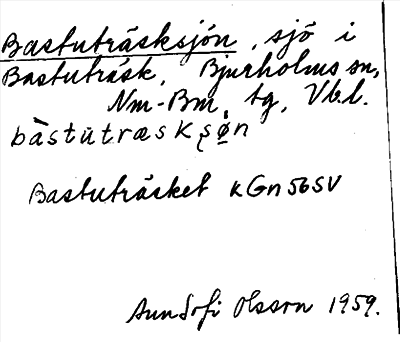 Bastuträsksjön, sjö i
Bastuträsk, Bjurholms sn,
Nm-Bm, tg, Vb.l.
bàstutræskʂø̣n
Bastuträsket kGn56SV
Ann Sofi Olsson 1959.